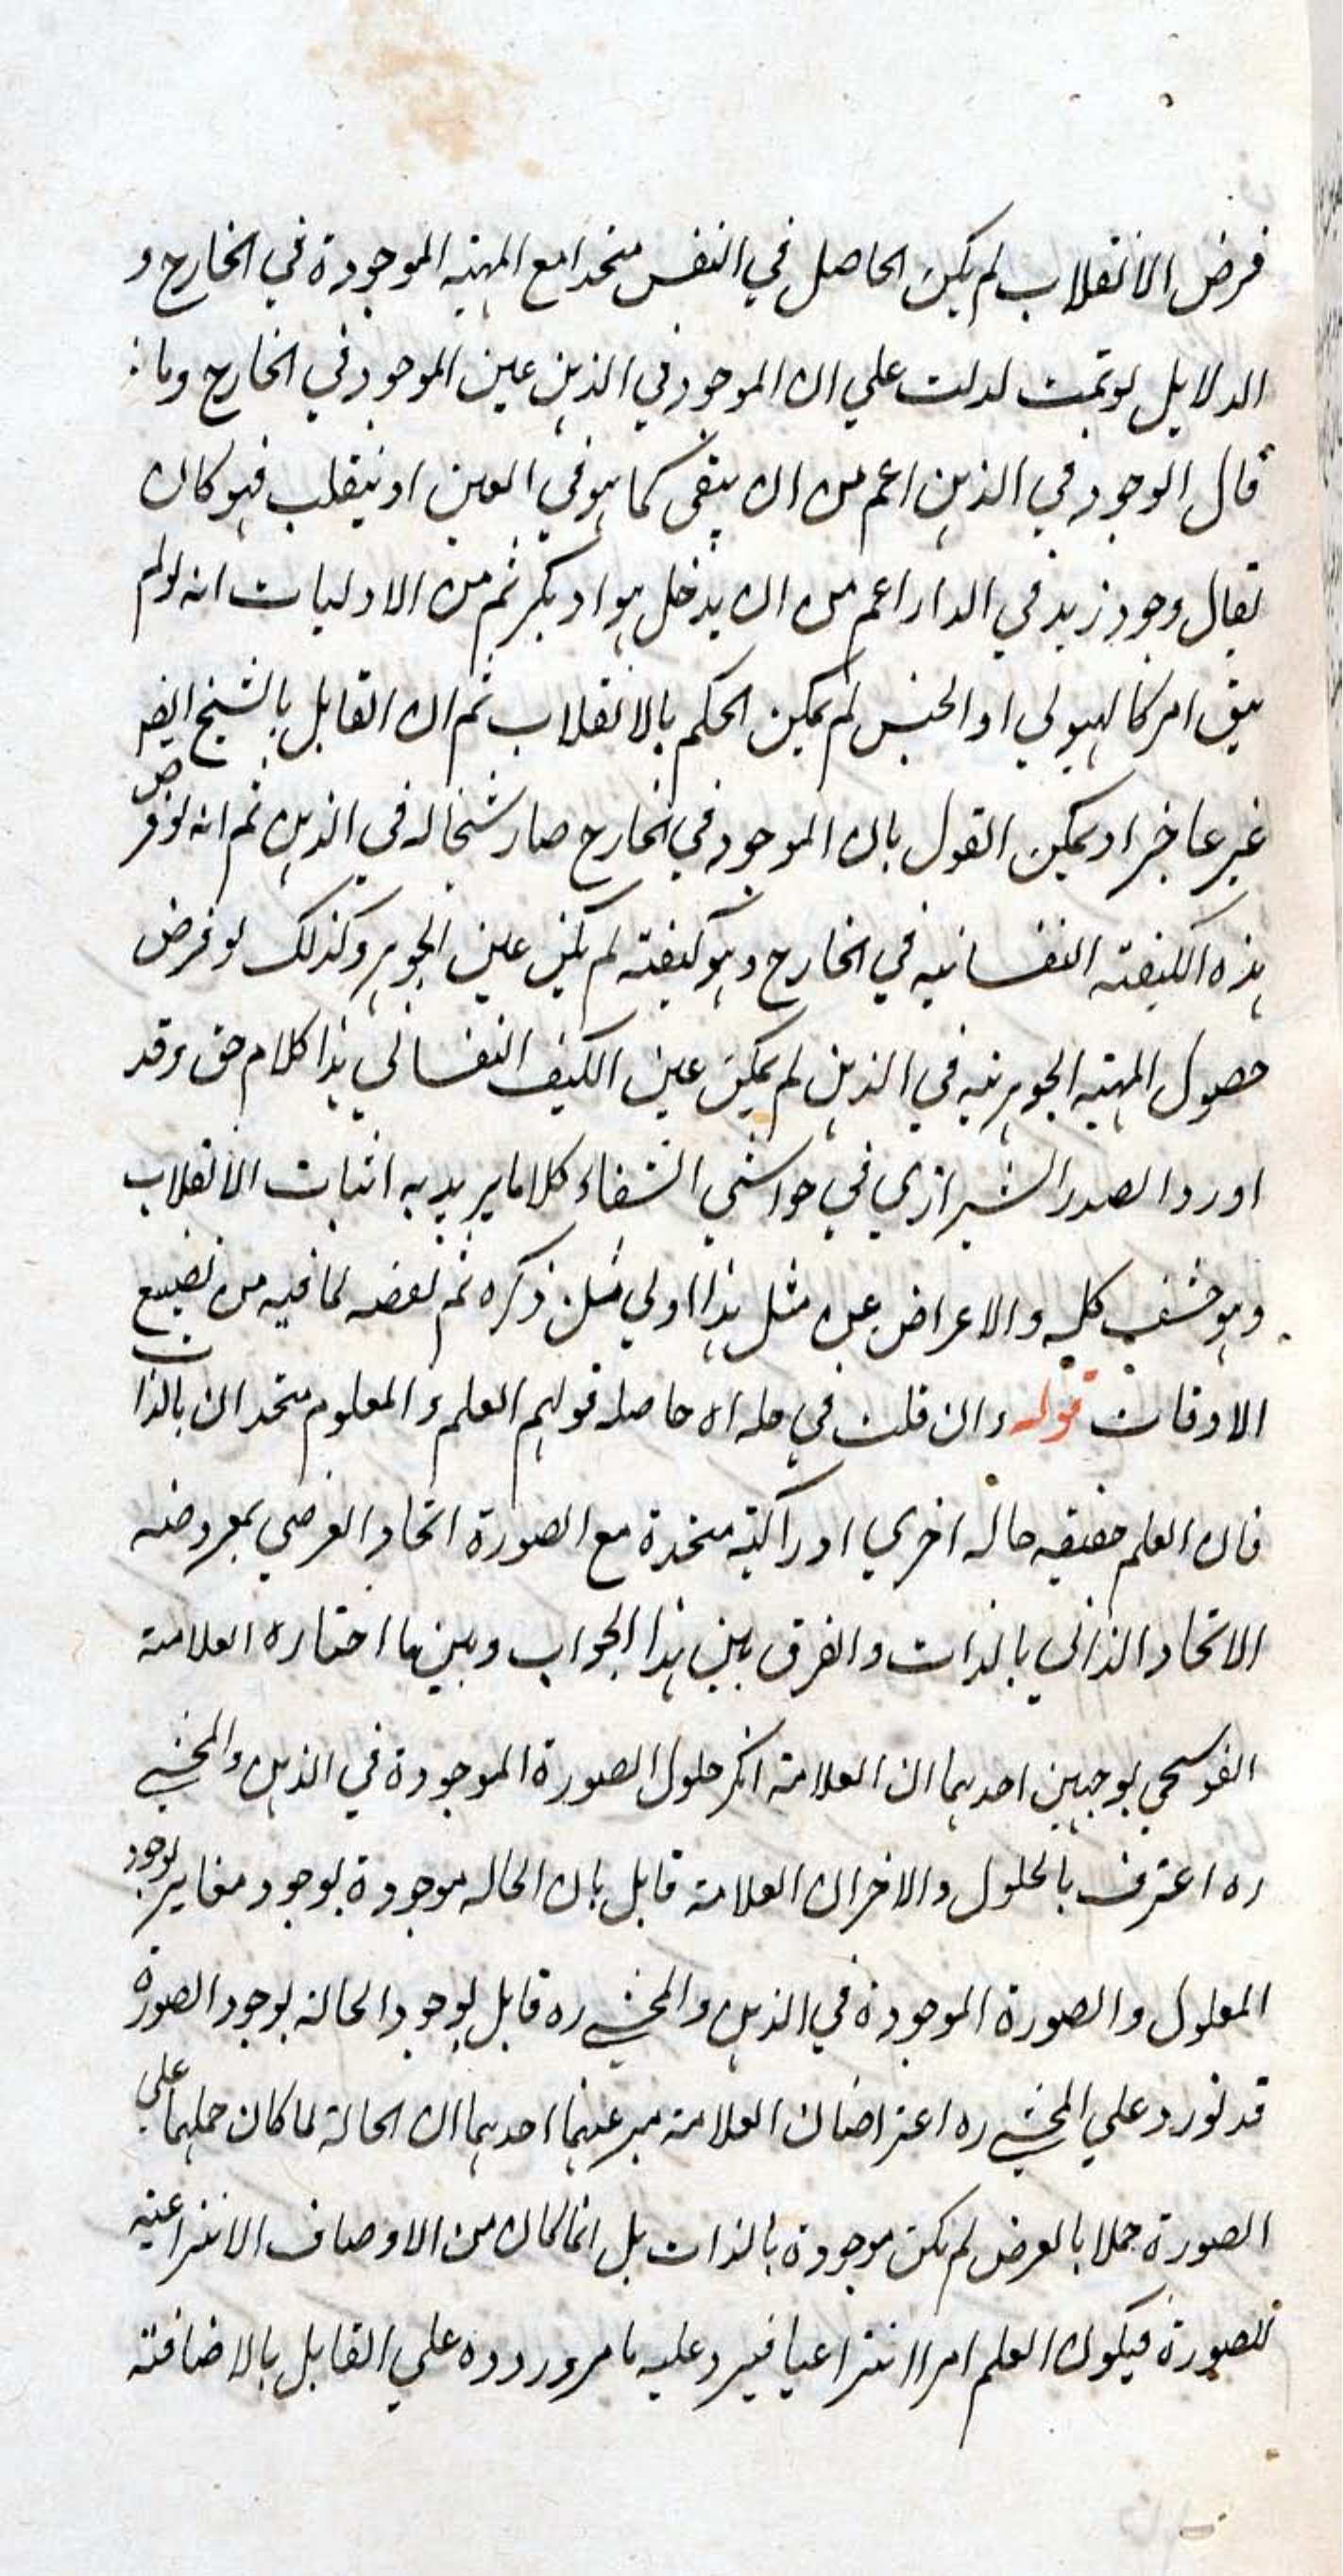 فرض الانقلاب لم يكن الحاصل في النفس متحدا مع المهية الموجودة في الخارج و
الدلايل لو تمت لدلت علي ان الموجود في الذهن عين الموجود في الخارج وما
قال الوجود في الذهن اعم من ان يبقي كما هو في العين او ينقلب فهو كان
يقال وجود زيد في الدار اعم من ان يدخل هو او بكر ثم من الاوليات انه لو لم
يبق امر كالهيولي او الجنس لم يمكن الحكم بالانقلاب ثم ان القايل بالشبح ايضا
غير عاجز اذ يمكن القول بان الموجود في الخارج صار شبحا له في الذهن ثم انه لو فرض
هذه الكيفية النفسانية في الخارج وهو كيفية لم يكن عين الجوهر وكذلك لو فرض
حصول المهية الجوهرية في الذهن لم يكن عين الكيف النفساني هذا كلام حق وقد
اورد الصدر الشيرازي في حواشي الشفاء كلاما يريد به اثبات الانقلاب
وهو خشف كله والاعراض عن مثل هذا اولي من ذكره ثم نقضه لما فيه من تضييع
الاوقات قوله وان قلت في حله اه حاصله قولهم العلم والمعلوم متحدان بالذات
فان العلم حقيقه حاله اخري ادراكية متحدة مع الصورة اتحاد العرضي بمعروضه
الاتحاد الذاتي بالذات والفرق بين هذا الجواب وبين ما اختاره العلامة
القوسجي بوجهين احدهما ان العلامة انكر حلول الصورة الموجودة في الذهن والمحشي
ره اعترف بالحلول والاخر ان العلامة قايل بان الحاله موجودة بوجود مغاير لوجود
المعلول والصورة الموجودة في الذهن والمحشي ره قايل بوجود الحالة بوجود الصورة
قد نورد علي المحشي ره اعتراضان العلامة مبر عنهما احدهما ان الحالة لما كان حملها علي
الصورة حملا بالعرض لم يكن موجودة بالذات بل انما كان من الاوصاف الانتزاعية
للصورة فيكون العلم امرا انتزاعيا فيرد عليه ما مر وروده علي القايل بالاضافة